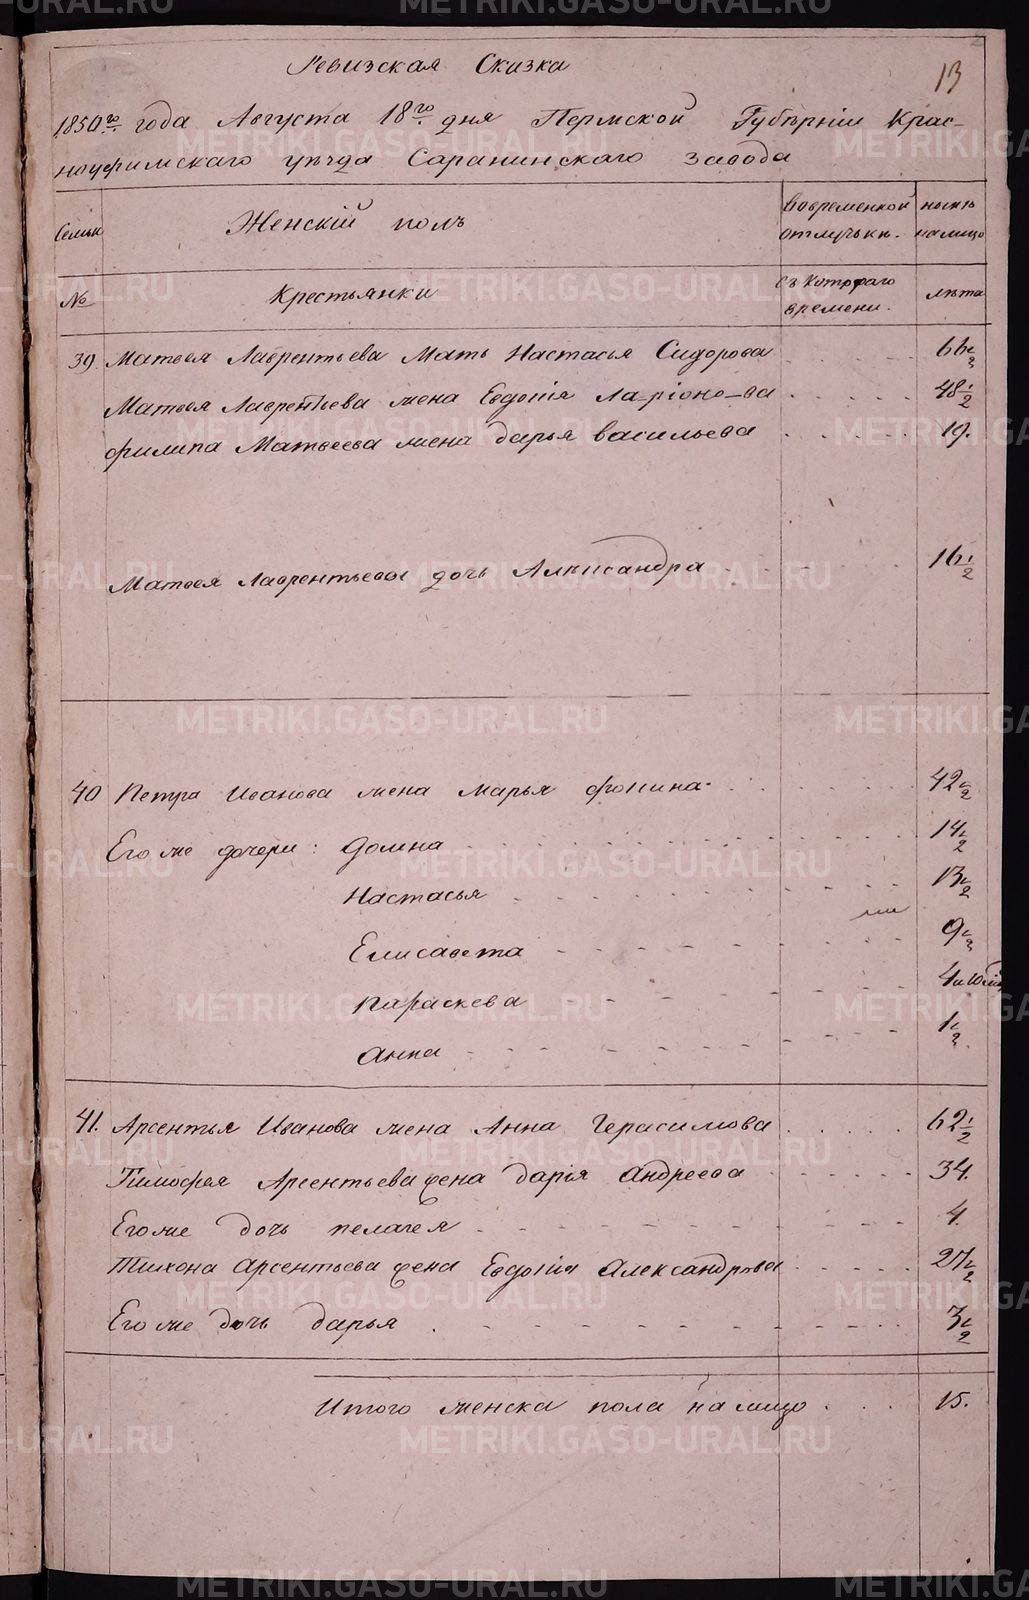 Ревизская Сказка
13
1850го года Августа 18го дня Пермской Губѣрніи Крас-
ноуфимскаго уѣзда Саранинскаго завода
Семьи
Женскій полъ
Вовременной отлучьки.
нынѣ налицо
№
Крестьянки
съ котораго времени.
лѣта
39 Матвея Лаврентьева Мать Настасья Сидорова 66½
Матвея Лаврентьева жена Евдокія Ларіоно-ва 48½
филипа Матвеева жена дарья васильева 19.
Матвея Лаврентьева дочь Алѣксандра 16½
40 Петра Иванова жена марья фокина 42½
Его же дочери: Домна 14½
Настасья 13½
Елисавета 9½
параскева
Анна 1½
41. Арсентья Иванова жена Анна Герасимова 62½
Тимофея Арсентьева жена дарія Андреева 34.
Егоже дочь пелагея 4.
Тихона Арсентьева жена Евдокія Александрова 27½
Егоже дочь дарья 3½
Итого женска пола налицо 15.
METRIKI.GASO-URAL.RU